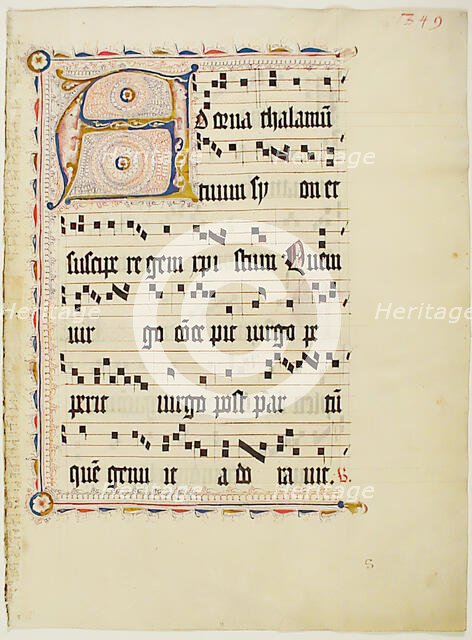 349
Adorna thalamū
tuum sy on et
suscipe regem xpi stum. Quem
uir go cōce pit uirgo pe
perit uirgo post par tū
quē genu it a do ra uit. V.
Heritage
Heritage
Heritage
Heritage
Heritage
Heritage
5